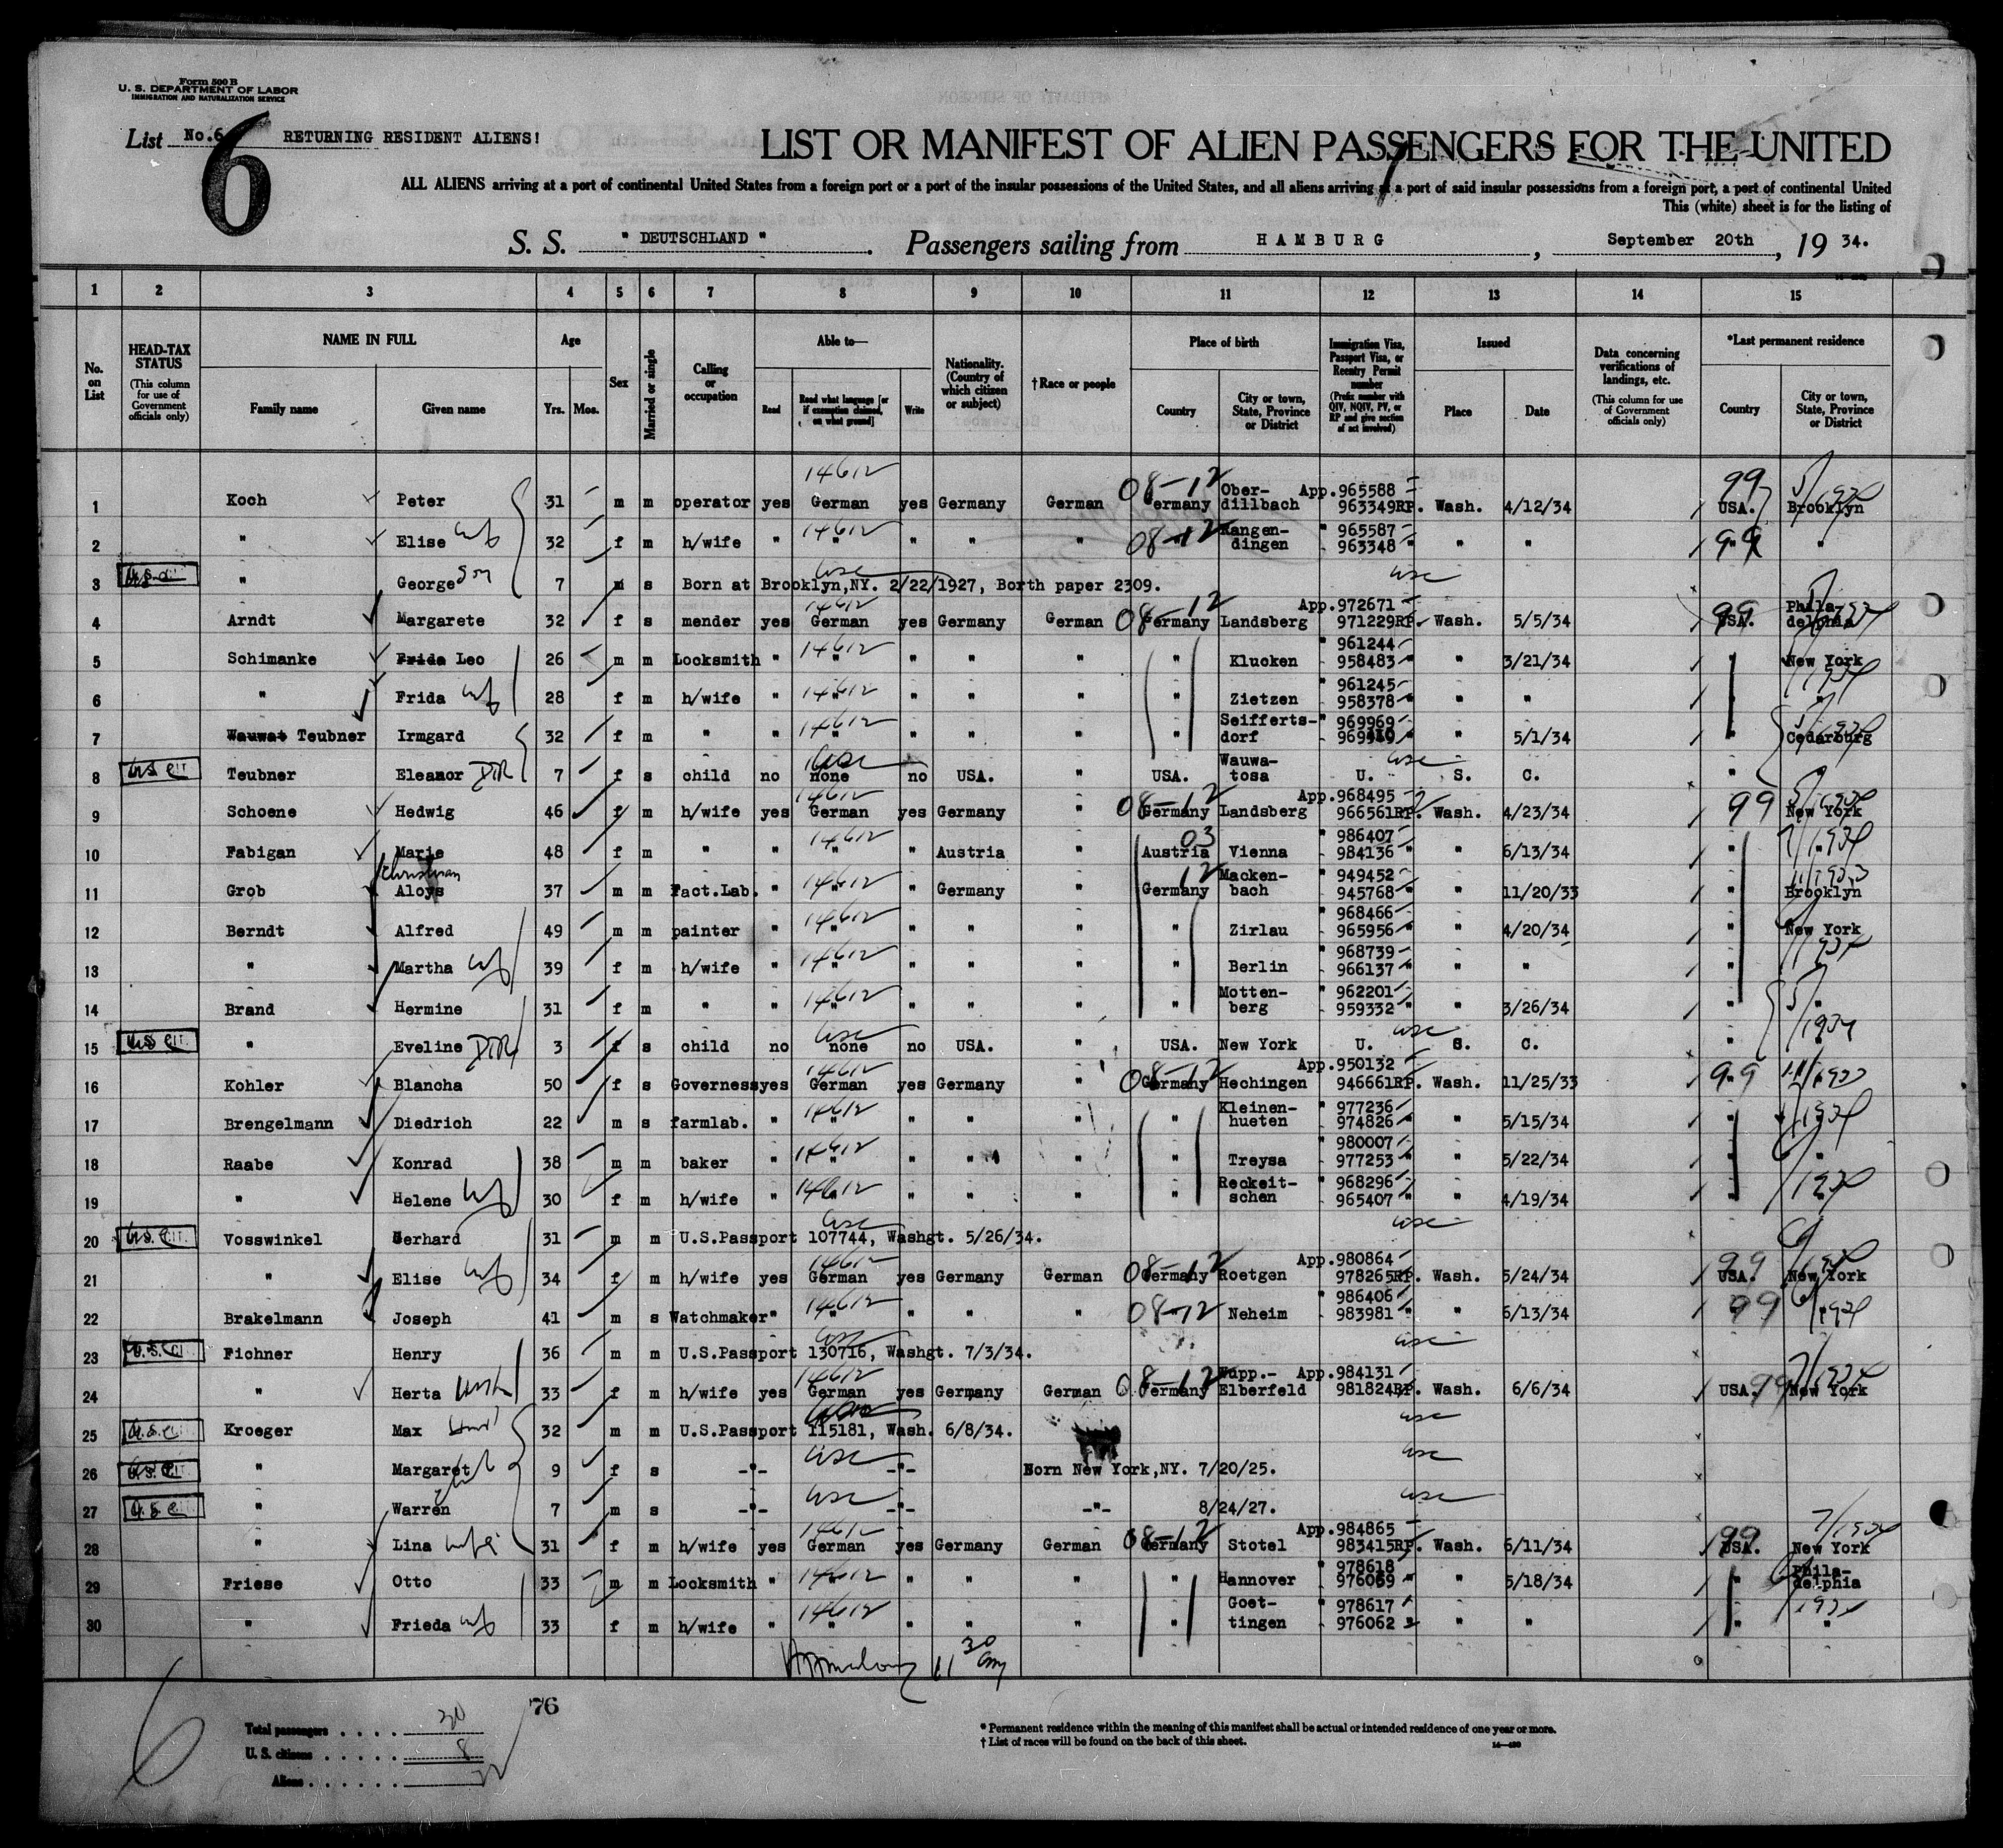 Form 500 B
U. S. DEPARTMENT OF LABOR
IMMIGRATION AND NATURALIZATION SERVICE
List No.6 RETURNING RESIDENT ALIENS!
6
LIST OR MANIFEST OF ALIEN PASSENGERS FOR THE UNITED
ALL ALIENS arriving at a port of continental United States from a foreign port or a port of the insular possessions of the United States, and all aliens arriving at a port of said insular possessions from a foreign port, a port of continental United
This (white) sheet is for the listing of
S. S. " DEUTSCHLAND " . Passengers sailing from HAMBURG , September 20th , 19 34.
1 2 3 4 5 6 7 8 9 10 11 12 13 14 15
No. on List
HEAD-TAX STATUS (This column for use of Government officials only)
NAME IN FULL Family name Given name
Age Yrs. Mos.
Sex
Married or single
Calling or occupation
Able to— Read Read what language [or if exemption claimed, on what ground] Write
Nationality. (Country of which citizen or subject)
†Race or people
Place of birth Country City or town, State, Province or District
Immigration Visa, Passport Visa, or Reentry Permit number (Prefix number with QIV, NQIV, PV, or RP and give section of act involved)
Issued Place Date
Data concerning verifications of landings, etc. (This column for use of Government officials only)
*Last permanent residence Country City or town, State, Province or District
1 Koch Peter 31 m m operator yes 14612 German yes Germany German 08-12 Germany Ober-dillbach App.965588 963349RP. Wash. 4/12/34 99 USA. 5/1934 Brooklyn
2 " Elise wf 32 f m h/wife " 14612 " " " " 08-12 " Kangen-dingen " 965587 963348 " " " 99 " "
3 U.S. George Son 7 m s Born at Brooklyn,NY. 2/22/1927, Borth paper 2309. usc usc
4 Arndt Margarete 32 f s mender yes 14612 German yes Germany German 08-12 Germany Landsberg App.972671 971229RP. Wash. 5/5/34 99 USA. Phila-delphia
5 Schimanke Frida Leo 26 m m Locksmith " 14612 " " " " " Klucken " 961244 958483 " " 3/21/34 " New York
6 " Frida wf 28 f m h/wife " 14612 " " " " " Zietzen " 961245 958378 " " " " "
7 Wauwat Teubner Irmgard 32 f m " " 14612 " " " " " Seifferts-dorf " 969969 " " 5/1/34 " Cedarburg
8 US CIT Teubner Eleanor DTR 7 f s child no usc none no USA. " USA. Wauwa-tosa usc U. S. C. " "
9 Schoene Hedwig 46 f m h/wife yes 14612 German yes Germany " 08-12 Germany Landsberg App.968495 966561RP. Wash. 4/23/34 99 New York
10 Fabigan Marie 48 f m " " 14612 " " Austria " 03 Austria Vienna " 986407 984136 " " 6/13/34 " 7/1934 "
11 Grob Christian Aloys 37 m m Fact.Lab. " 14612 " " Germany " 12 Germany Macken-bach " 949452 945768 " " 11/20/33 " 11/1933 Brooklyn
12 Berndt Alfred 49 m m painter " 14612 " " " " " Zirlau " 968466 965956 " " 4/20/34 " New York
13 " Martha wf 39 f m h/wife " 14612 " " " " " Berlin " 968739 966137 " " " " "
14 Brand Hermine 31 f m " " 14612 " " " " " Motten-berg " 962201 959332 " " 3/26/34 " "
15 US CIT. " Eveline DTR 3 f s child no usc none no USA. " USA. New York usc U. S. C. " "
16 Kohler Blancha 50 f s Governess yes 14612 German yes Germany " 08-12 Germany Hechingen App.950132 946661RP. Wash. 11/25/33 99 " 11/1933 "
17 Brengelmann Diedrich 22 m s farmlab. " 14612 " " " " " Kleinen-hueten " 977236 974826 " " 5/15/34 " "
18 Raabe Konrad 38 m m baker " 14612 " " " " " Treysa " 980007 977253 " " 5/22/34 " "
19 " Helene wf 30 f m h/wife " 14612 " " " " " Reckeit-schen " 968296 965407 " " 4/19/34 " "
20 U.S. CIT. Vosswinkel Gerhard 31 m m U.S.Passport 107744, Washgt. 5/26/34. usc usc
21 " Elise wf 34 f m h/wife yes 14612 German yes Germany German 08-12 Germany Roetgen App.980864 978265RP. Wash. 5/24/34 99 USA. New York
22 Brakelmann Joseph 41 m s Watchmaker " 14612 " " " " 08-12 " Neheim " 986406 983981 " " 6/13/34 99 "
23 U.S. CIT Fichner Henry 36 m m U.S.Passport 130716, Washgt. 7/3/34. usc usc
24 " Herta 33 f m h/wife yes 14612 German yes Germany German 08-12 Germany Wupp.-Elberfeld App.984131 981824RP. Wash. 6/6/34 USA. 99 7/1934 New York
25 U.S.C Kroeger Max 32 m m U.S.Passport 115181, Wash. 6/8/34. usc
26 U.S. CIT. " Margaret 9 f s -"- usc -"- Born New York,NY. 7/20/25. usc
27 U.S.C " Warren 7 m s -"- usc -"- -"- 8/24/27. usc
28 " Lina wife 31 f m h/wife yes 14612 German yes Germany German 08-12 Germany Stotel App.984865 983415RP. Wash. 6/11/34 99 USA. 7/1934 New York
29 Friese Otto 33 m m Locksmith " 14612 " " " " " Hannover " 978618 976059 " " 5/18/34 " Phila-delphia
30 " Frieda wf 33 f m h/wife " 14612 " " " " " Goet-tingen " 978617 976062 " " " " "
11 30 am
6
76
Total passengers . . . . 30
U. S. citizens . . . . . 8
Aliens . . . . . . 22
* Permanent residence within the meaning of this manifest shall be actual or intended residence of one year or more.
† List of races will be found on the back of this sheet.